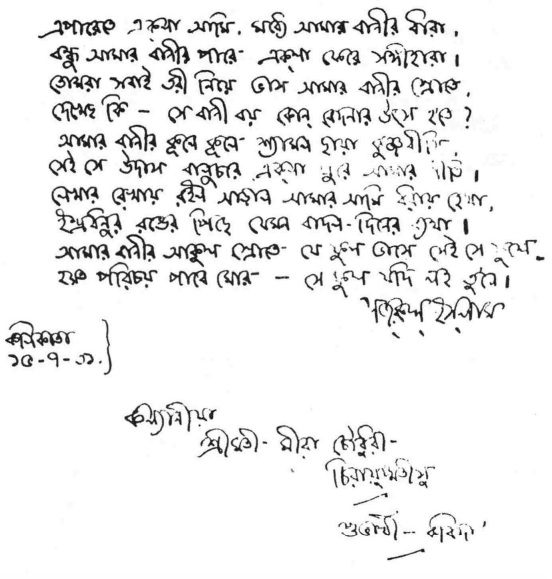 এপারেতে একলা আমি, মধ্যে আমার বাণীর ধারা,
বন্ধু আমার বাণীর পারে একলা ফেরে সঙ্গীহারা।
তোমরা সবাই তরী নিয়ে ভাস আমার বাণীর স্রোতে,
দেখেছ কি – সে বাণী বয় কোন্ বেদনার উৎস হ'তে?
আমার বাণীর কূলে কূলে শ্যামল ছায়া কুঞ্জবীথি,
সেই সে উদাস বালুচরে একলা ঘুরে আমার
লেখার রেখায় রইল আড়াল আমার আমি হেথা,
ইন্দ্রধনুর রঙের পিছে যেমন বাদল-দিনের ব্যথা।
আমার বাণীর আকুল স্রোতে যে ফুল ভাসে সেই সে ফুলে
হয়ত পরিচয় পাবে মোর – সে ফুল যদি লই তুলে।
নজরুল ইসলাম
কলিকাতা
১৫-৭-৩১
কল্যাণীয়া
শ্রীমতী মীরা চৌধুরী
চিরায়ুষ্মতীষু
শুভার্থী – কবিদা